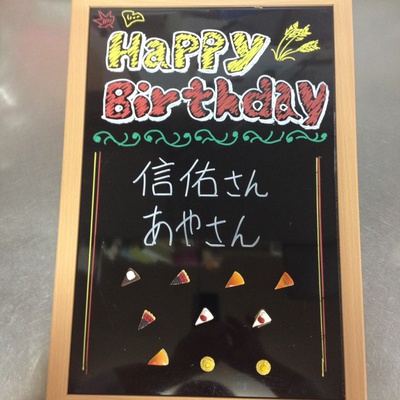 Happy
Birthday
信佑さん
あやさん